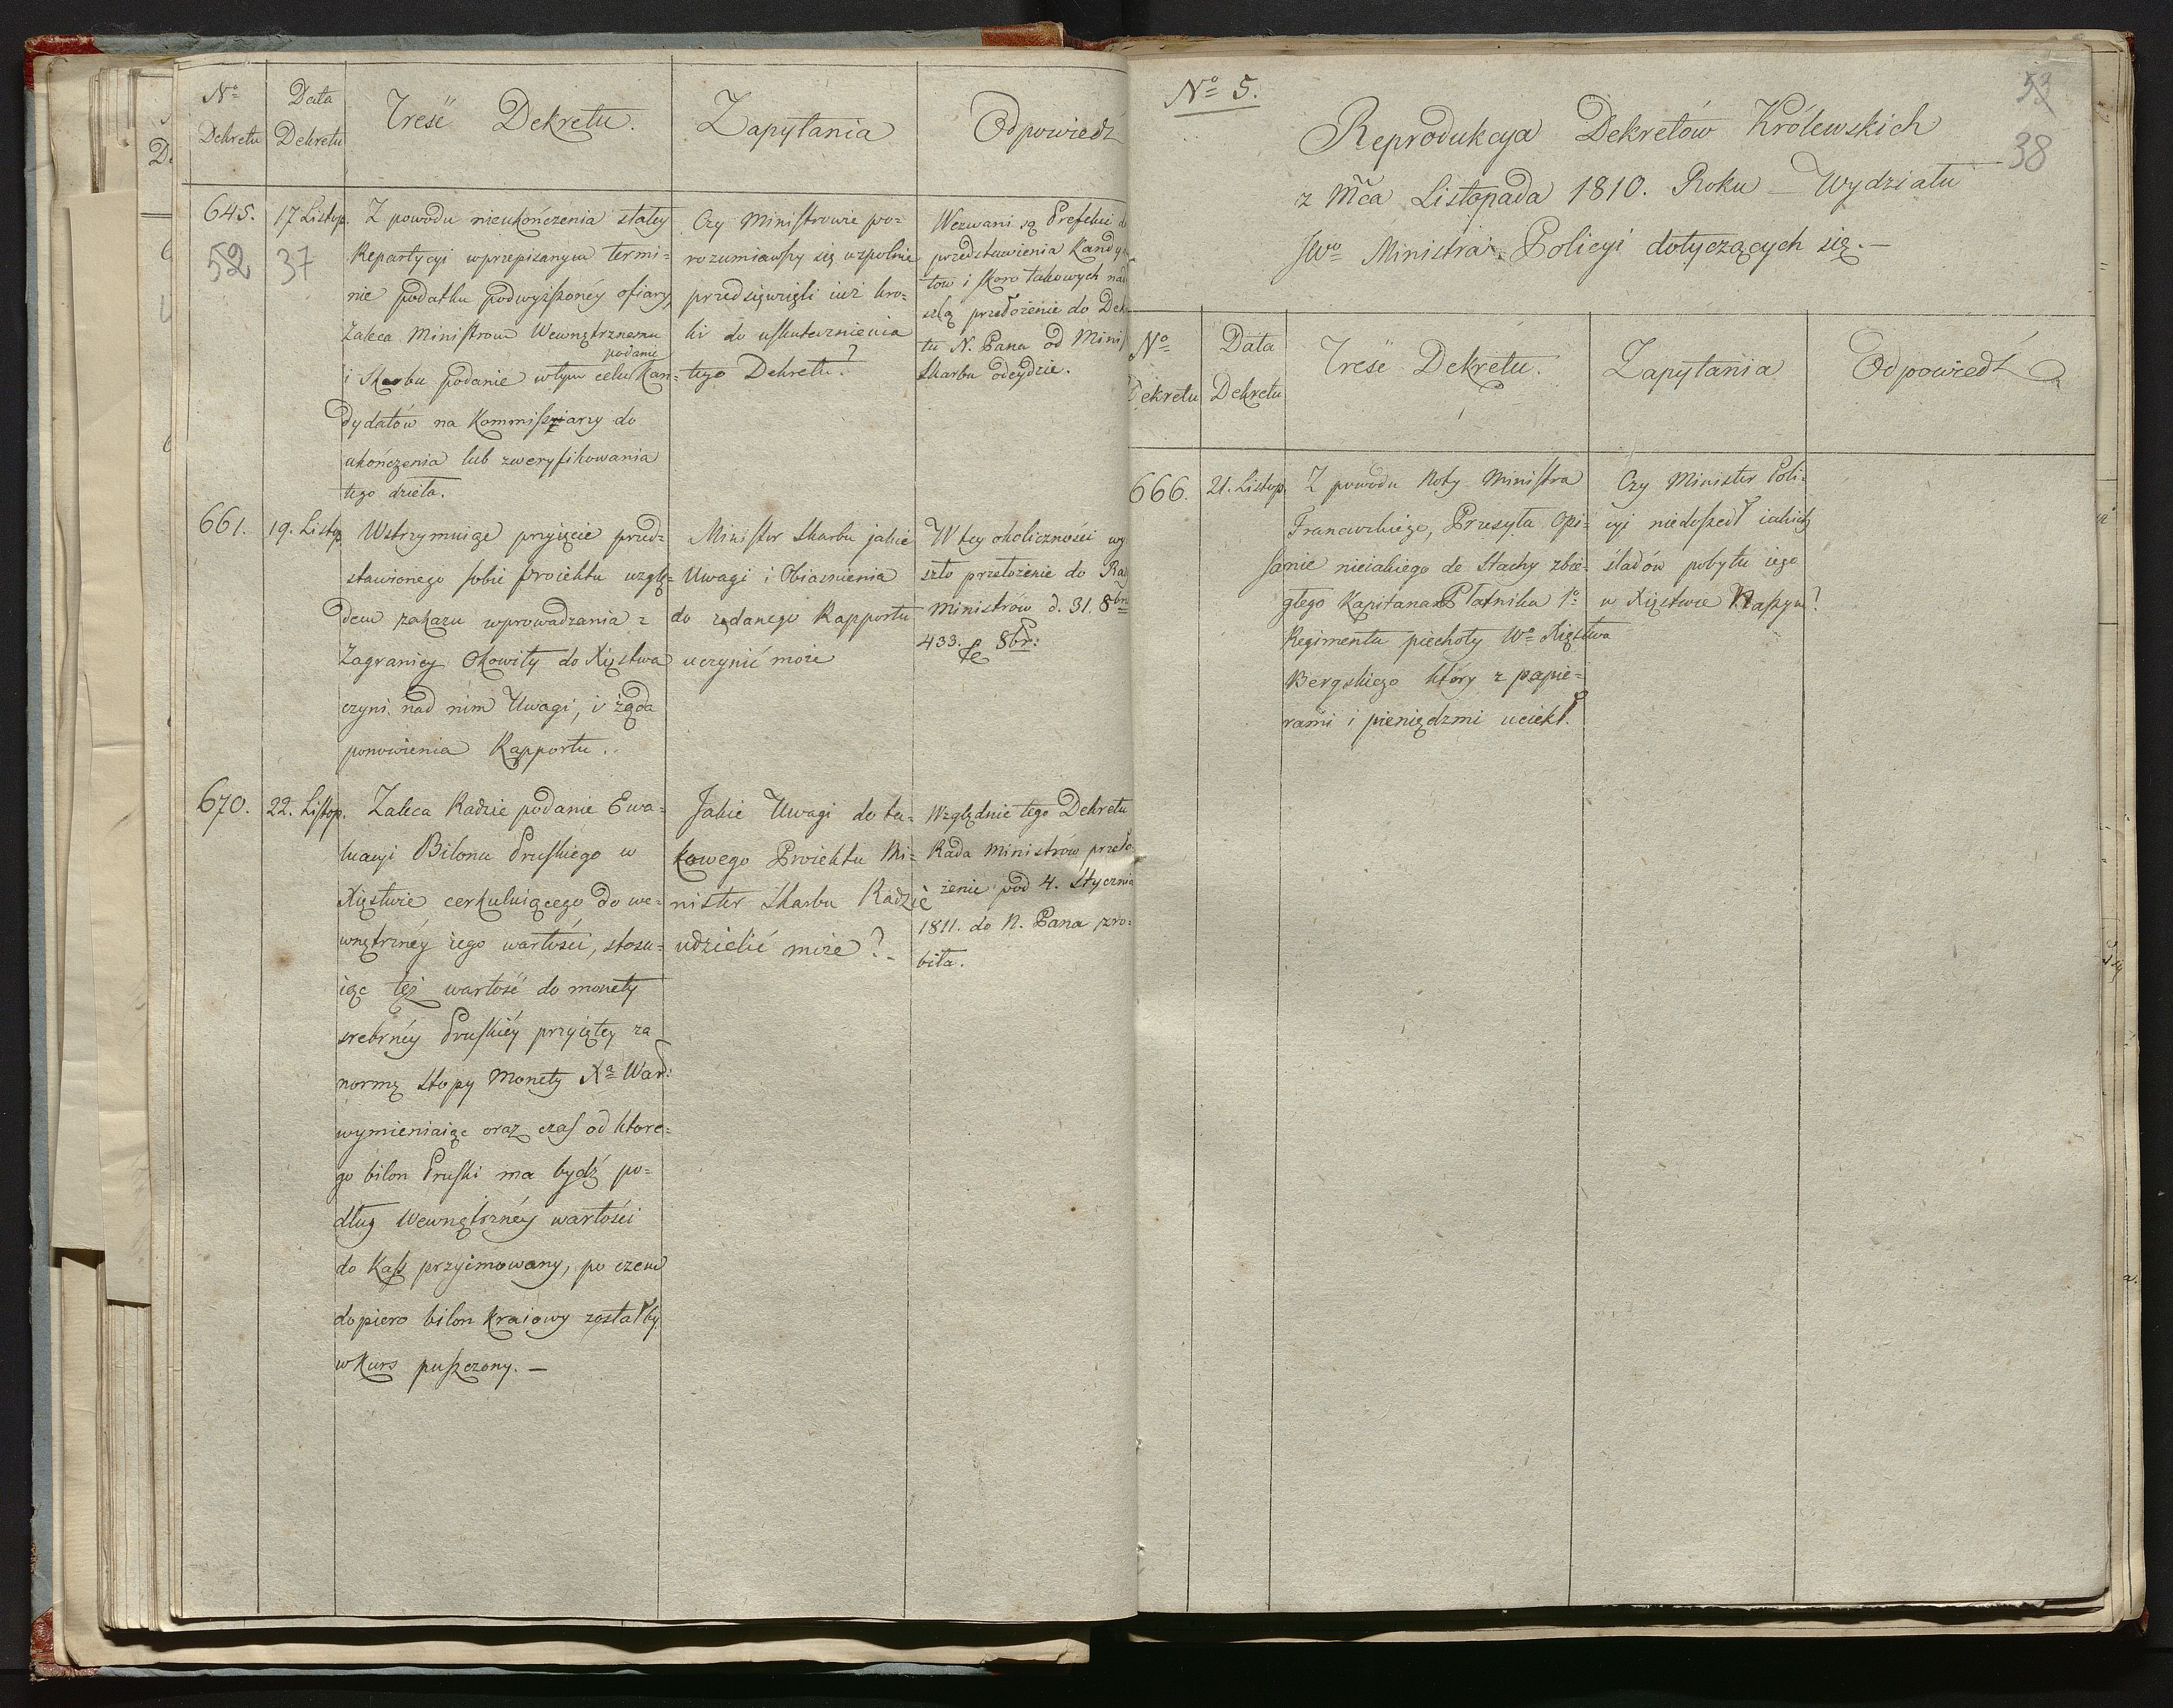 No
Dekretu
Data
Dekretu
Treść Dekretu.
Zapytania
Odpowiedź
645.
52 37
17 Listop.
Z powodu nieukończenia stałey
Repartycyi wprzepisanym termi=
nie podatku podwyższonéy ofiary,
Zaleca Ministrom Wewnętrznemu
podanie
i Skarbu podanie wtym celu Kan=
dydatów na Kommissarzy do
ukończenia lub zweryfikowania
tego dzieła.
Czy Ministrowie po=
rozumiawszy się wspolnie
przedsięwzięli iuż kro=
ki do uskutecznienia
tego Dekretu?
Wezwani są Prefekci
przedstawienia Kandy
tow i skoro takowych
szlą przełożenie do Dek
tu N. Pana od Minis
Skarbu odeydzie.
661.
19. Listop.
Wstrzymuiąc przyięcie przed=
stawionego sobie proiektu wzglę=
dem zakazu wprowadzania z
Zagranicy Okowity do Xięstwa
czyni nad nim Uwagi, i żąda
ponowienia Rapportu.
Minister Skarbu jakie
Uwagi i Obiaśnienia
do rządanego Rapportu
uczynić może
W tey okoliczności wy
szło przełożenie do Rad
Ministrów d. 31. 8br
433. 8br:
670.
22. Listop.
Zaleca Radzie podanie Ewa=
luacyi Bilonu Pruskiego w
Xięstwie cerkuluiącego do we=
wnętrznéy iego wartości, stosu=
iąc tęż wartość do monety
srebrnéy Pruskiéy przyiętey za
normę stopy Monety Xa War:
wymieniaiąc oraz czas od które=
go bilon Pruski ma bydź po=
dług Wewnętrznéy wartości
do Kass przyimowany, po czem
dopiero bilon Kraiowy zostałby
w Kurs puszczony. —
Jakie Uwagi do ta=
kowego Proiektu Mi=
nister Skarbu Radzie
udzielić może? -
Względnie tego Dekretu
Rada Ministrów przeło
żenie pod 4. Stycznia
1811. do N. Pana zro=
biła.
No 5.
53
38
Reprodukcya Dekretów Królewskich
z Mca Listopada 1810. Roku — Wydziału
JWo Ministra Policyi dotyczących się. —
No
Dekretu
Data
Dekretu
Treść Dekretu.
Zapytania
Odpowiedź
666.
21. Listop.
Z powodu Noty Ministra
Francuzkiego, Przesyła Opi=
sanie nieiakiego de Stachy zbie=
głego Kapitana Płatnika 1o
Regimentu piechoty Wo Xięstwa
Bergskiego który z papie=
rami i pieniędzmi uciekł.
Czy Minister Poli=
cyi niedoszedł iakich
śladów pobytu iego
w Xięstwie Naszym?